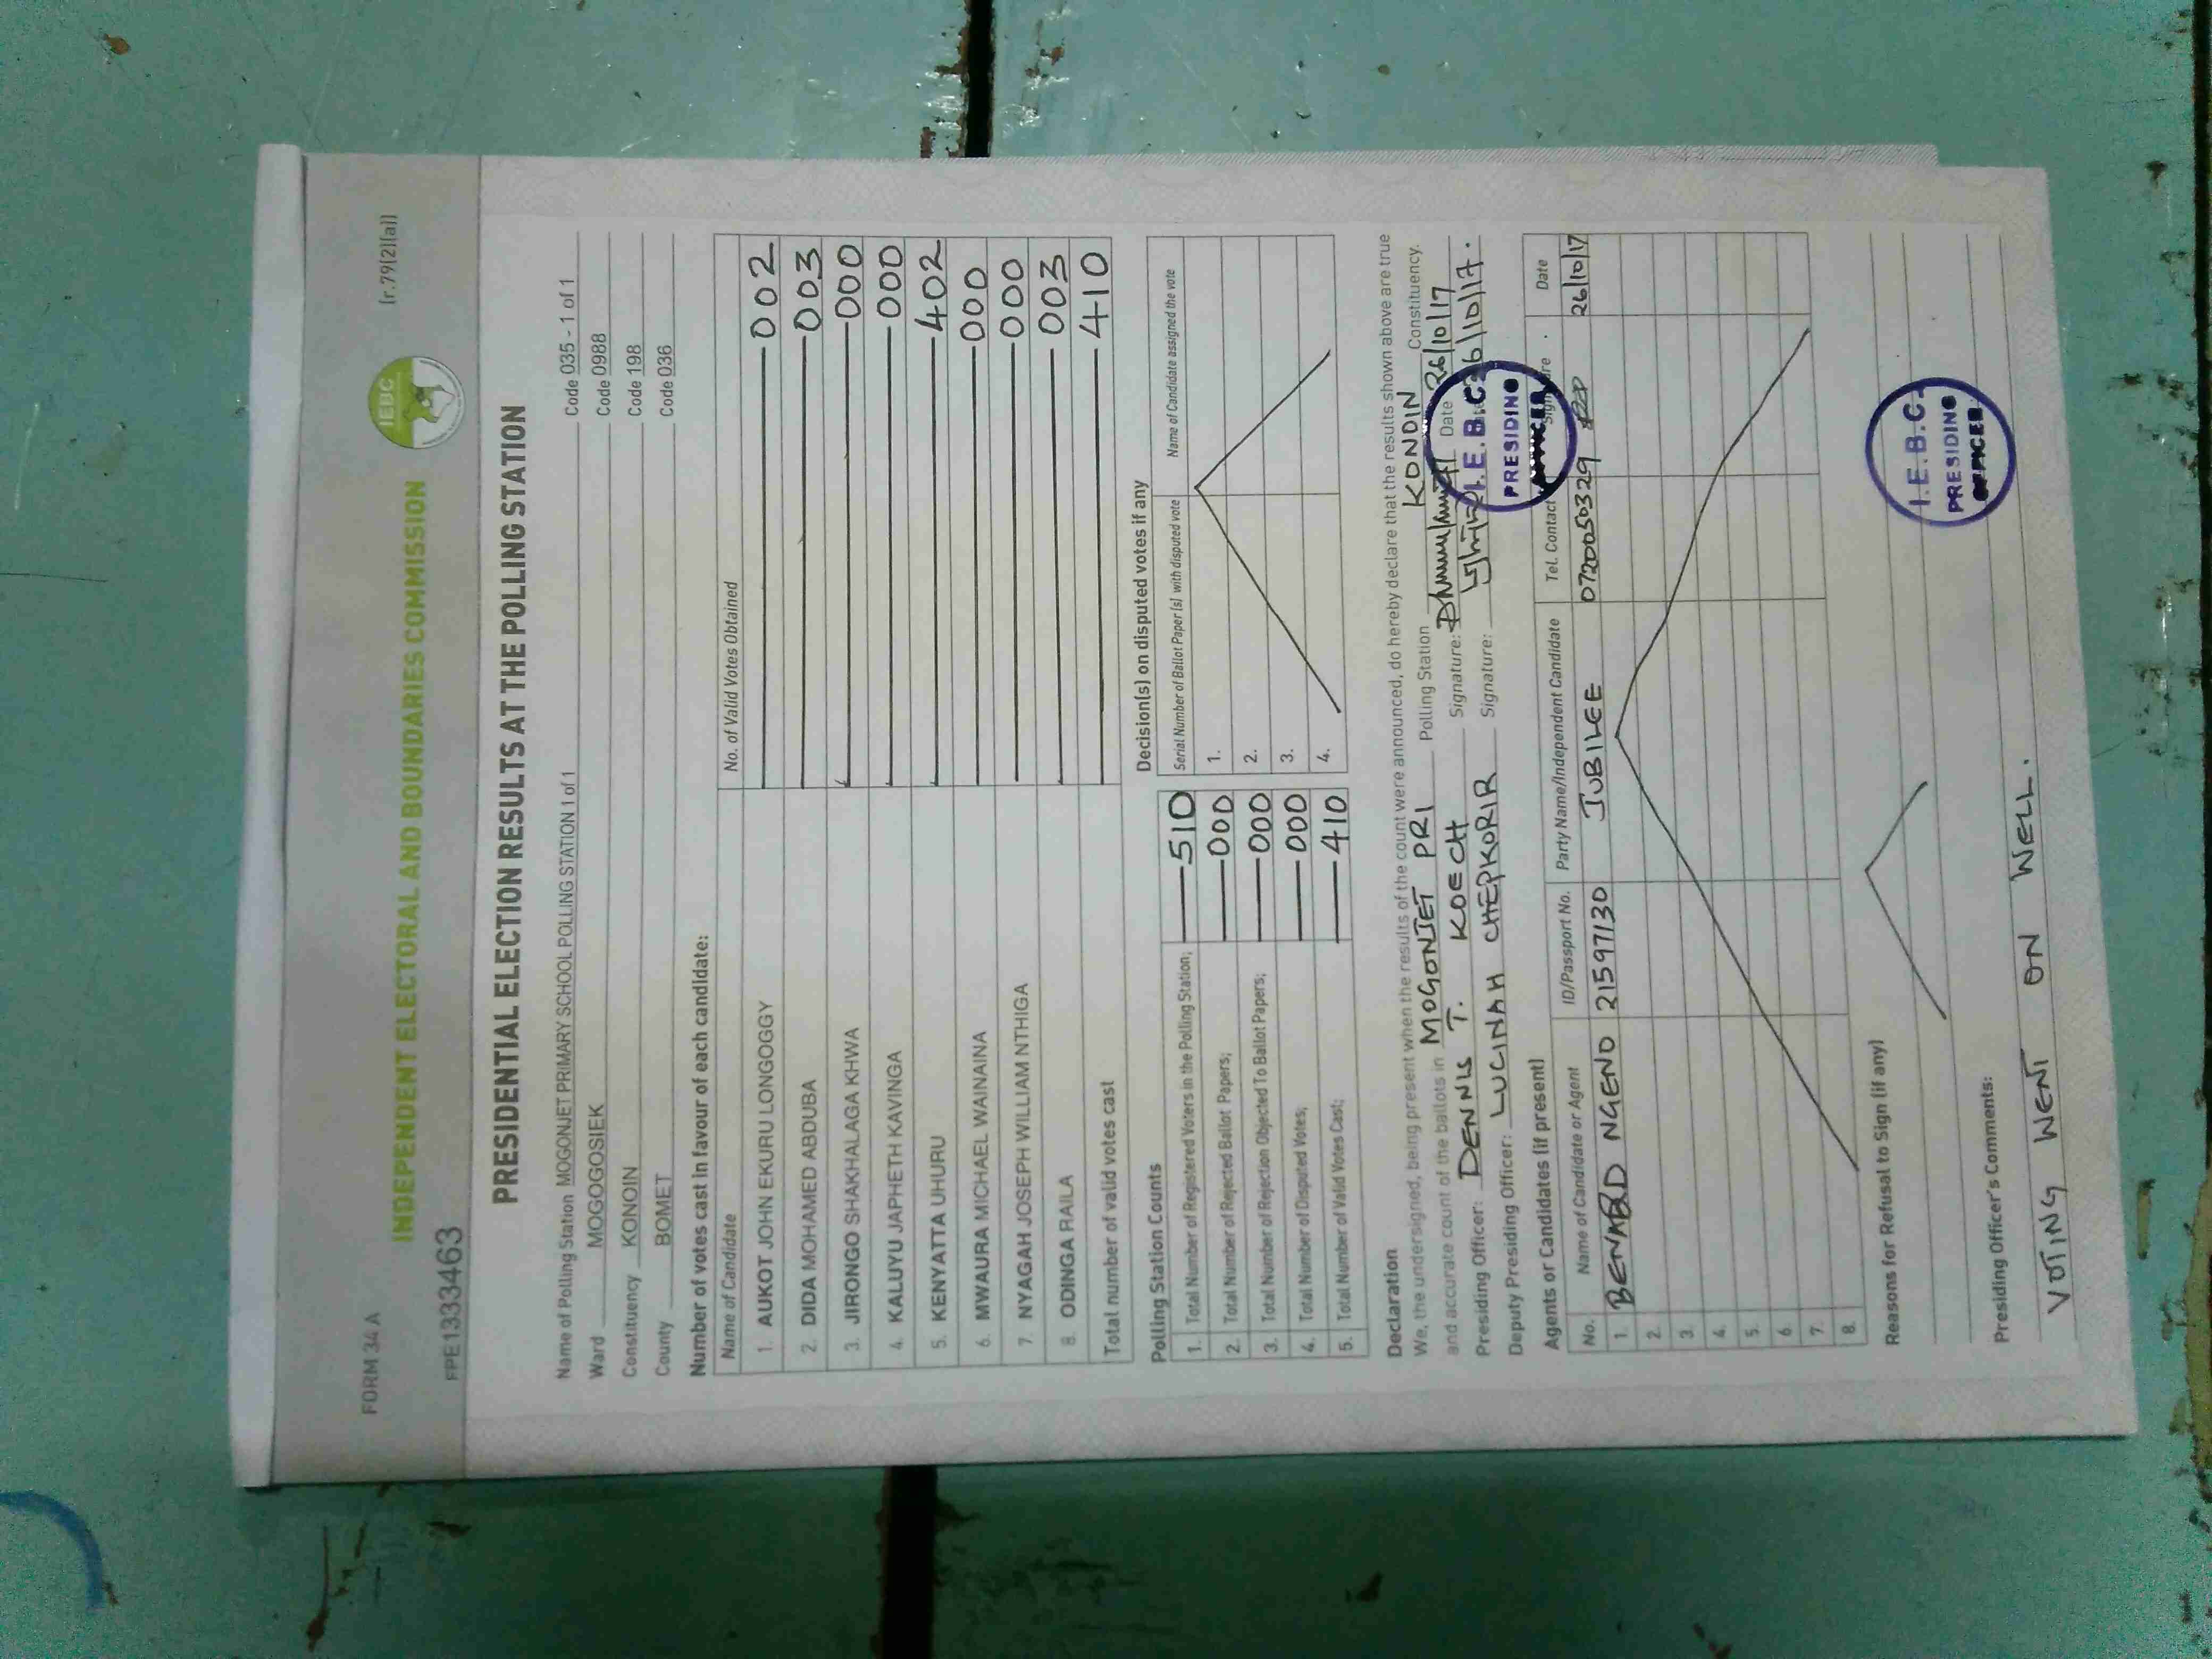 FORM 34 A
(r.79(2)(a))
IEBC
INDEPENDENT ELECTORAL AND BOUNDARIES COMMISSION
FPE1333463
PRESIDENTIAL ELECTION RESULTS AT THE POLLING STATION
Name of Polling Station MOGONJET PRIMARY SCHOOL POLLING STATION 1 of 1 Code 035 - 1 of 1
Ward MOGOGOSIEK Code 0988
Constituency KONOIN Code 198
County BOMET Code 036
Number of votes cast in favour of each candidate:
Name of Candidate No. of Valid Votes Obtained
1. AUKOT JOHN EKURU LONGOGGY 002
2. DIDA MOHAMED ABDUBA 003
3. JIRONGO SHAKHALAGA KHWA 000
4. KALUYU JAPHETH KAVINGA 000
5. KENYATTA UHURU 402
6. MWAURA MICHAEL WAINAINA 000
7. NYAGAH JOSEPH WILLIAM NTHIGA 000
8. ODINGA RAILA 003
Total number of valid votes cast 410
Polling Station Counts
1. Total Number of Registered Voters in the Polling Station; 510
2. Total Number of Rejected Ballot Papers; 000
3. Total Number of Rejection Objected To Ballot Papers; 000
4. Total Number of Disputed Votes; 000
5. Total Number of Valid Votes Cast; 410
Decision(s) on disputed votes if any
Serial Number of Ballot Paper(s) with disputed vote Name of Candidate assigned the vote
1.
2.
3.
4.
Declaration
We, the undersigned, being present when the results of the count were announced, do hereby declare that the results shown above are true
and accurate count of the ballots in MOGONJET PRI Polling Station KONDIN Constituency.
Presiding Officer: DENNIS T. KOECH Signature: Date 26/10/17
Deputy Presiding Officer: LUCINAH CHEPKORIR Signature: 26/10/17.
I.E.B.C.
PRESIDING
OFFICER
Agents or Candidates (if present)
No. Name of Candidate or Agent ID/Passport No. Party Name/Independent Candidate Tel. Contact Signature Date
1. BENARD NGENO 21597130 JUBILEE 0720050329 26/10/17
2.
3.
4.
5.
6.
7.
8.
Reasons for Refusal to Sign (if any)
I.E.B.C.
PRESIDING
OFFICER
Presiding Officer's Comments:
VOTING WENT ON WELL.